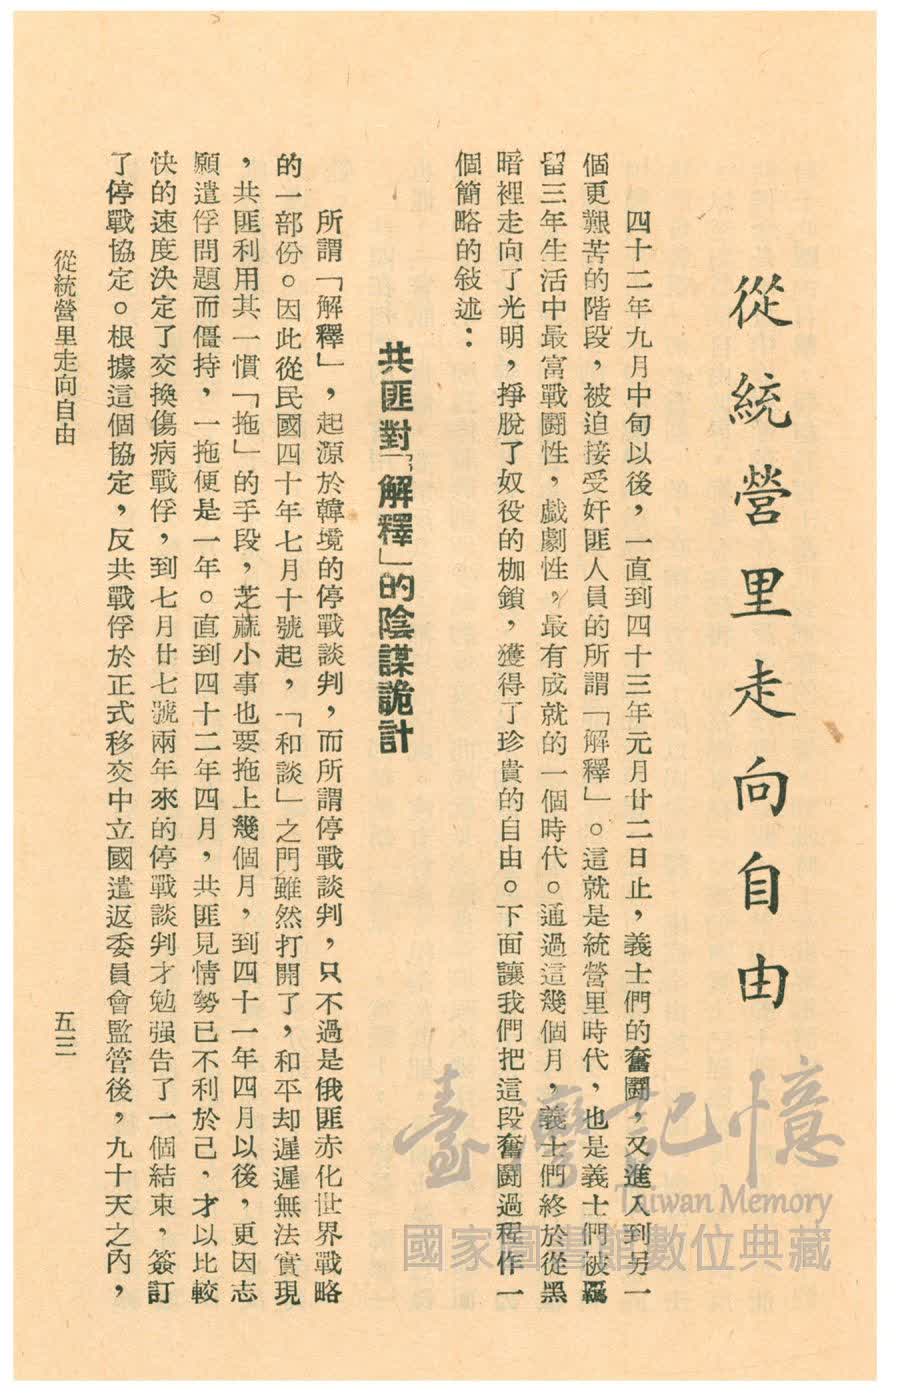 從統營里走向自由
四十二年九月中旬以後，一直到四十三年元月廿二日止，義士們的奮鬪，又進入到另一
個更艱苦的階段，被迫接受奸匪人員的所謂「解釋」。這就是統營里時代，也是義士們被羈
留三年生活中最富戰鬪性，戲劇性，最有成就的一個時代。通過這幾個月，義士們終於從黑
暗裡走向了光明，掙脫了奴役的枷鎖，獲得了珍貴的自由。下面讓我們把這段奮鬪過程作一
個簡略的敍述：
共匪對「解釋」的陰謀詭計
所謂「解釋」，起源於韓境的停戰談判，而所謂停戰談判，只不過是俄匪赤化世界戰略
的一部份。因此從民國四十年七月十號起，「和談」之門雖然打開了，和平却遲遲無法實現
，共匪利用其一慣「拖」的手段，芝蔴小事也要拖上幾個月，到四十一年四月以後，更因志
願遣俘問題而僵持，一拖便是一年。直到四十二年四月，共匪見情勢已不利於己，才以比較
快的速度決定了交換傷病戰俘，到七月廿七號兩年來的停戰談判才勉强告了一個結束，簽訂
了停戰協定。根據這個協定，反共戰俘於正式移交中立國遣返委員會監管後，九十天之內，
從統營里走向自由
五三
臺灣記憶
Taiwan Memory
國家圖書館數位典藏